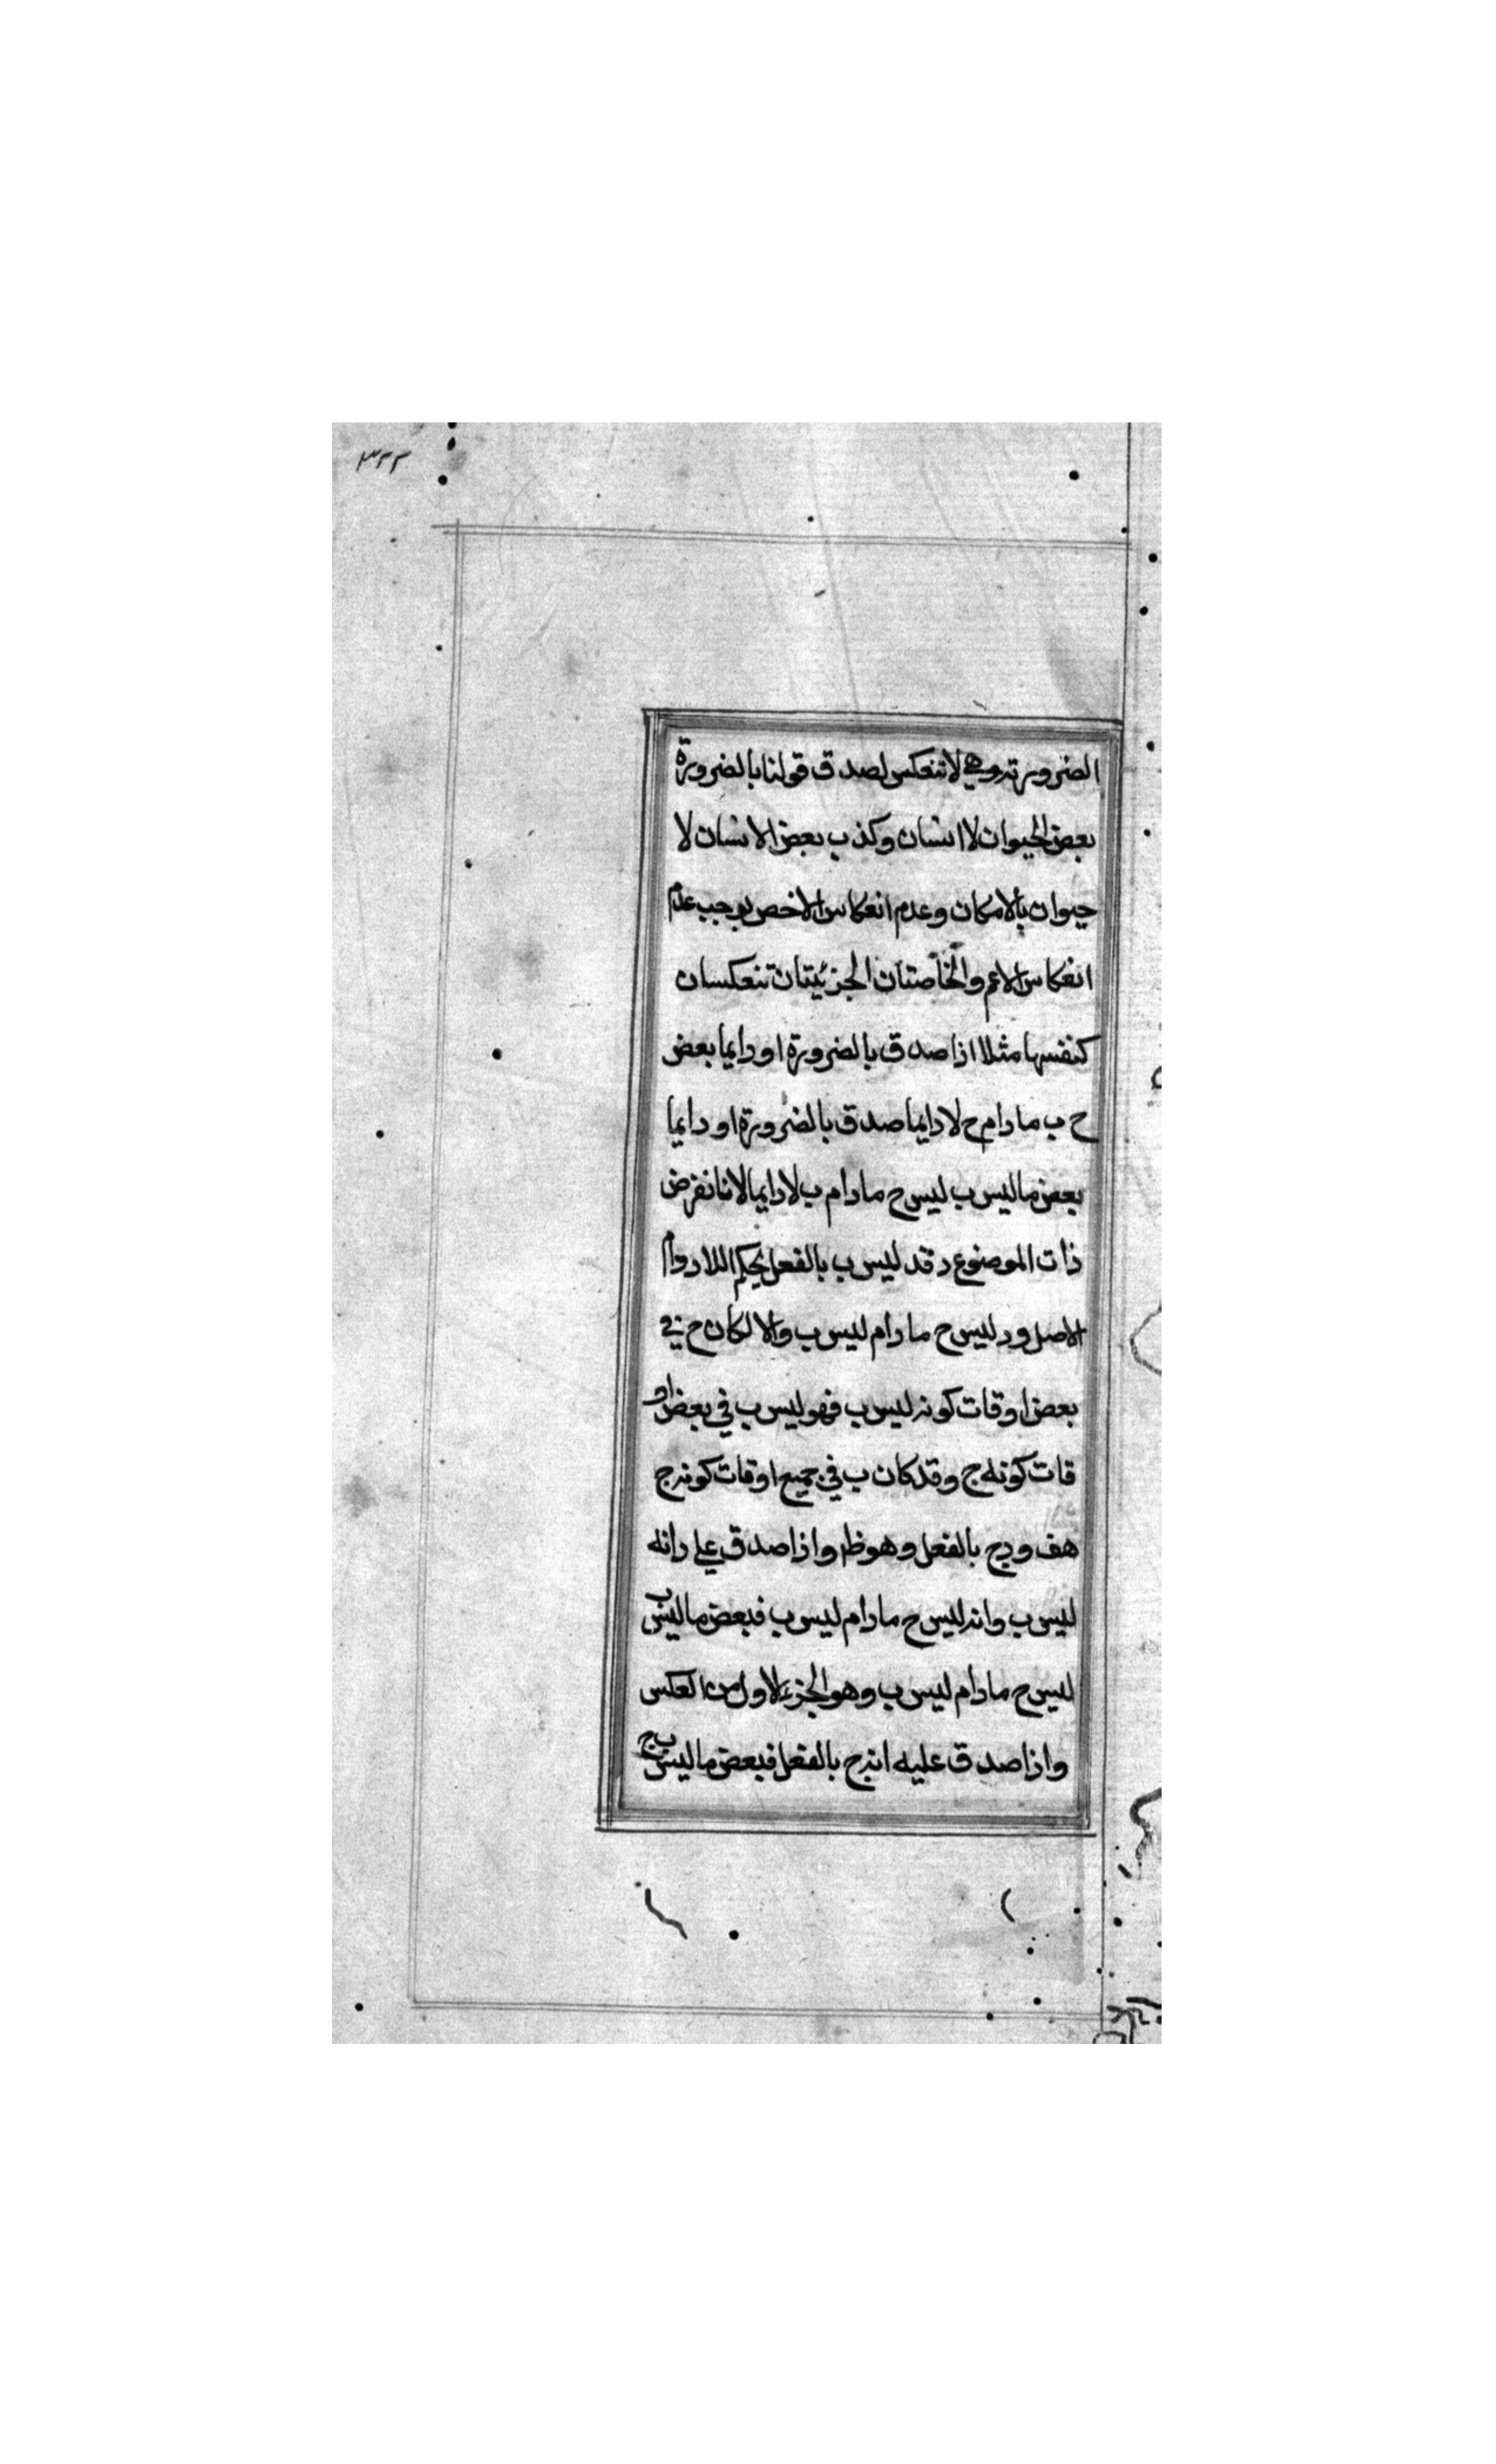 ٣٢٢
الضروريته وهي لا تنعكس لصدق قولنا بالضرورة
بعض الحيوان لا انسان وكذب بعض الانسان لا
حيوان بالامكان وعدم انعكاس الاخص يوجب عدم
انعكاس الاعم والخاصتان الجزئيتان تنعكسان
كنفسها مثلا اذا صدق بالضرورة او دايما بعض
ح ب مادام ح لا دايما صدق بالضرورة او دايما
بعض ما ليس ب ليس ح مادام ب لا دايما لانا نفرض
ذات الموضوع د فد ليس ب بالفعل بحكم اللادوام
الاصل ود ليس ح مادام ليس ب والا لكان ح في
بعض اوقات كونه ليس ب فهو ليس ب في بعض او
قات كونه ج وقد كان ب في جميع اوقات كونه ج
هف ودج بالفعل وهو ظ واذا صدق على د انه
ليس ب وانه ليس ح مادام ليس ب فبعض ما ليس ب
ليس ح مادام ليس ب وهو الجزء الاول من العكس
واذا صدق عليه انه ج بالفعل فبعض ما ليس ب ج